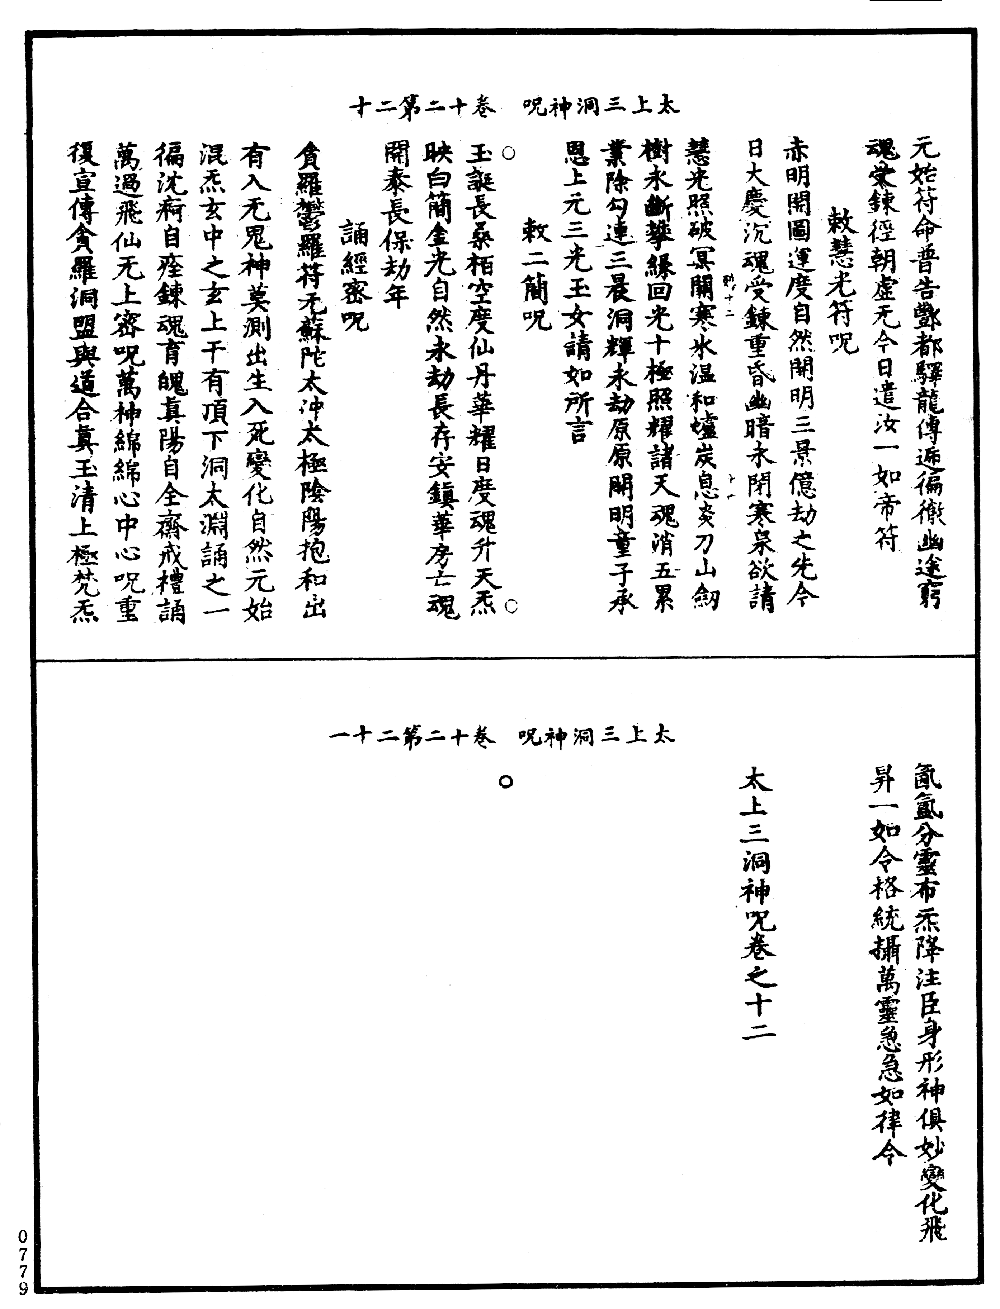 太上三洞神呪　卷十二第二十
元始符命普告酆都驛龍傳遞徧徹幽途窮
魂棠鍊徑朝虛无今日遣汝一如帝符
敕慧光符呪
赤明開圖運度自然開明三景億劫之先今
日大慶沉魂受鍊重昏幽暗永閉寒泉欲請
慧光照破冥關寒氷溫和爐炭息炎刀山劒
樹永斷攀緣回光十極照耀諸天魂消五累
業除勾連三晨洞輝永劫原原開明童子承
恩上元三光玉女請如所言
敕二簡呪
玉誕長桑栢空度仙丹華耀日度魂升天炁
映白簡金光自然永劫長存安鎮華房亡魂
開泰長保劫年
誦經密呪
貪羅鬱羅符无蘇陀太冲太極陰陽抱和出
有入无鬼神莫測出生入死變化自然元始
混炁玄中之玄上干有頂下洞太淵誦之一
徧沈痾自痊鍊魂育魄真陽自全齋戒禮誦
萬過飛仙无上密呪萬神綿綿心中心呪重
復宣傳貪羅洞盟與道合真玉清上極梵炁
太上三洞神呪　卷十二第二十一
氤氳分靈布炁降注臣身形神俱妙變化飛
昇一如令格統攝萬靈急急如律令
太上三洞神呪卷之十二
0779